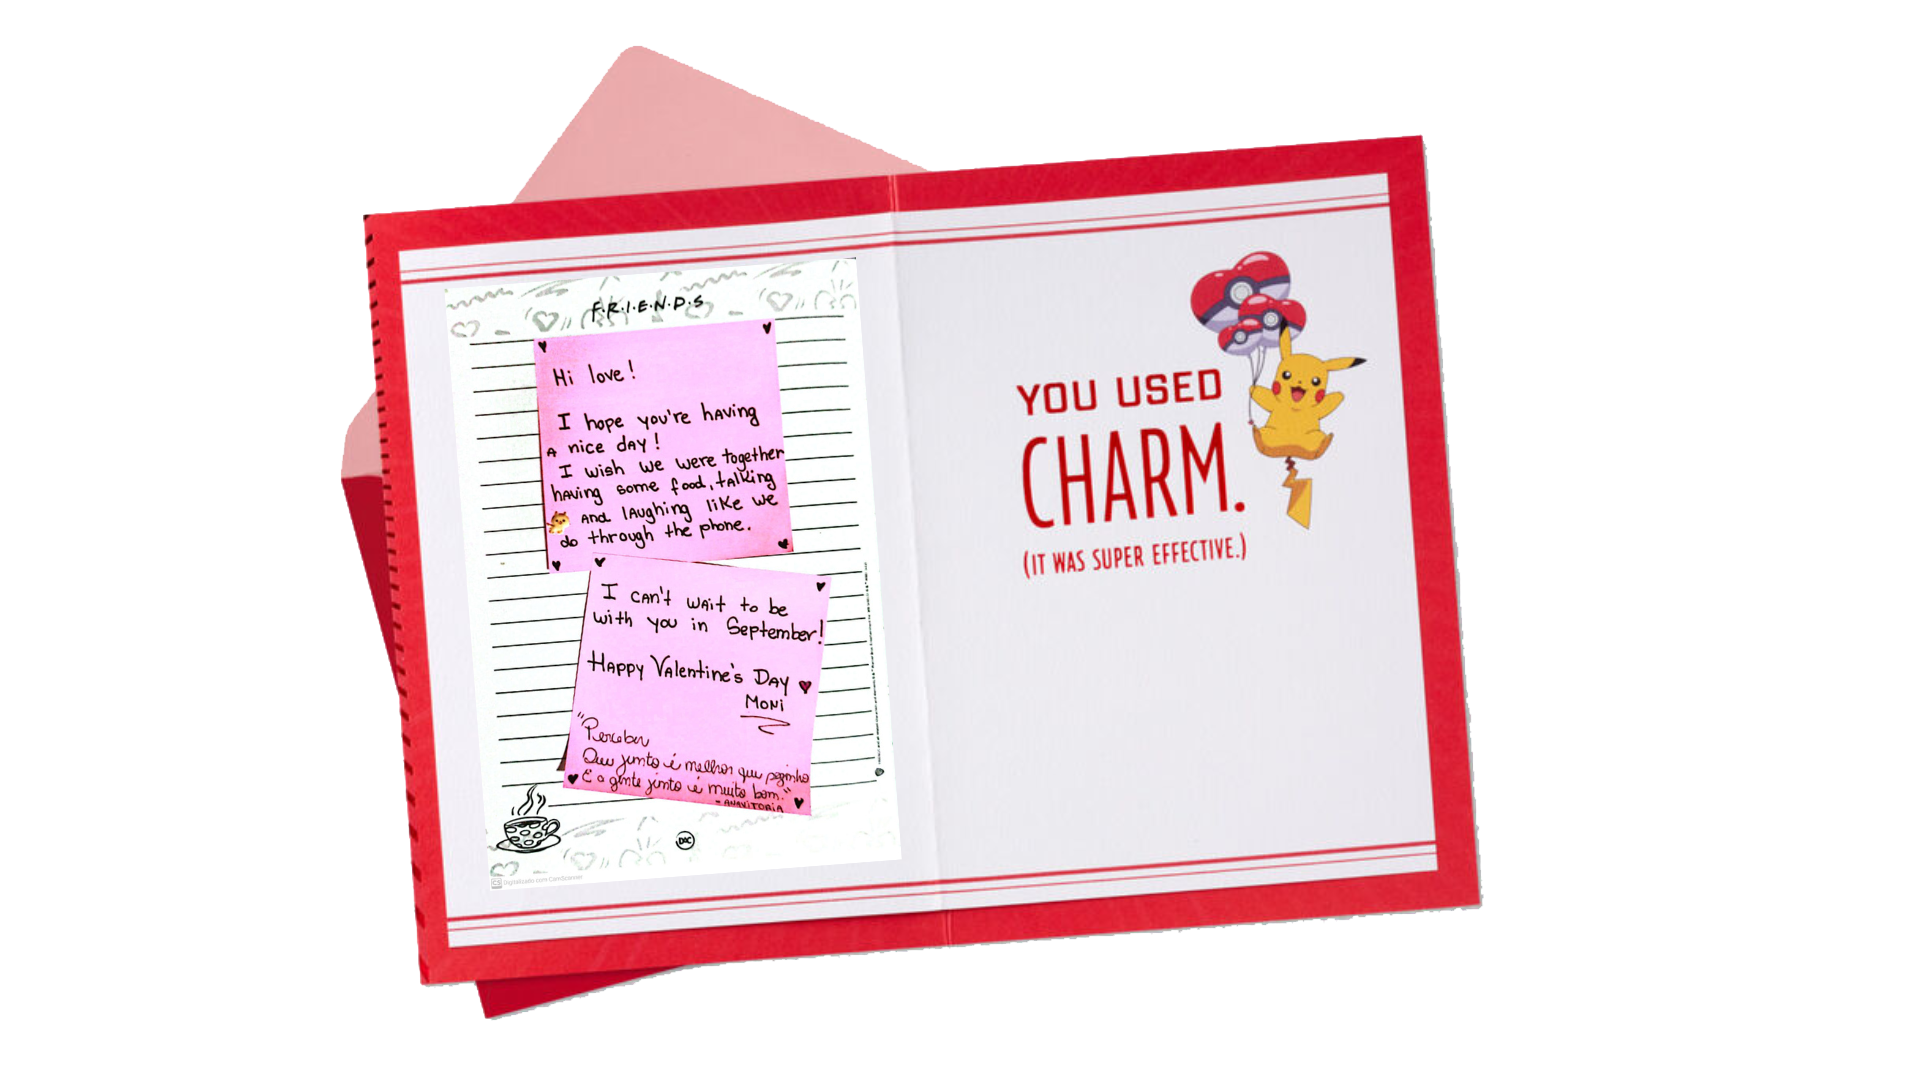 F.R.I.E.N.D.S
Hi love!
I hope you're having
a nice day!
I wish we were together
having some food, talking
and laughing like we
do through the phone.
I can't wait to be
with you in September!
Happy Valentine's Day
Moni
"Perceber
Que junto é melhor que sozinho
E a gente junto é muito bom."
- ANAVITORIA
DAC
CS Digitalizado com CamScanner
YOU USED
CHARM.
(IT WAS SUPER EFFECTIVE.)